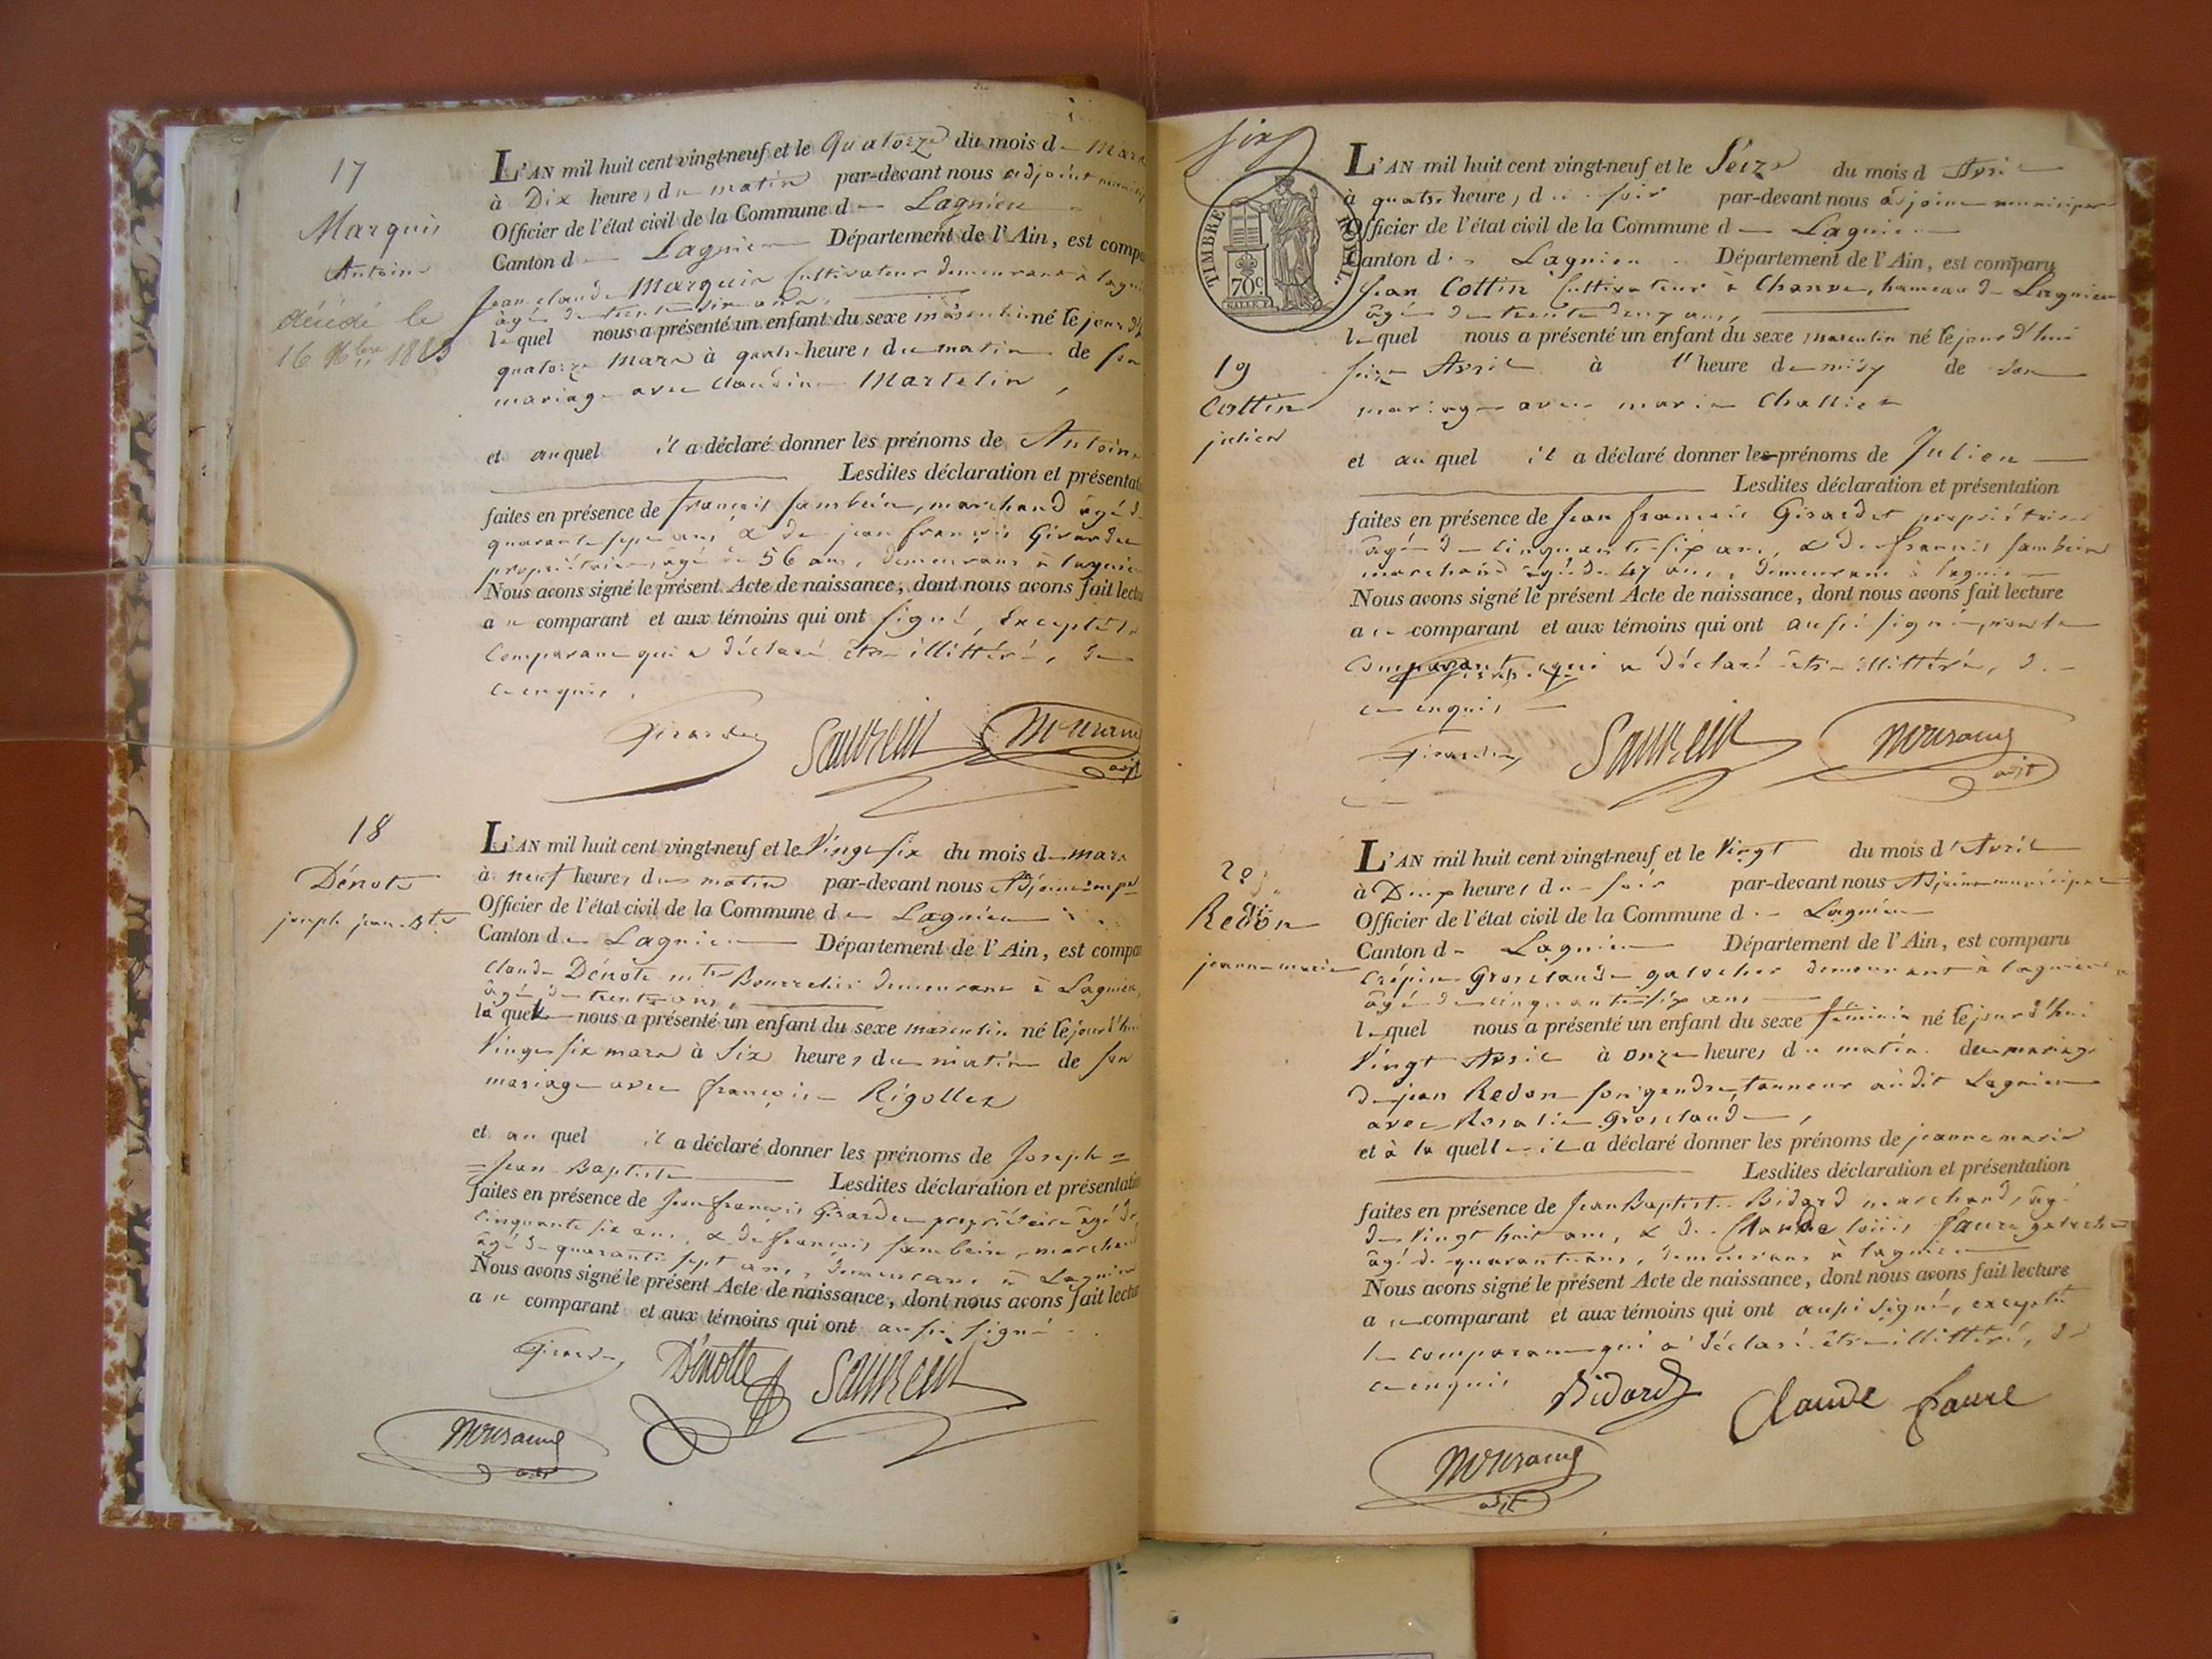 17
Marquis
Antoine
décédé le
16 1883
L'AN mil huit cent vingt-neuf et le Quatorze du mois de Mars
à Dix heures du matin par-devant nous adjoint
Officier de l'état civil de la Commune de Lagnieu
Canton de Lagnieu Département de l'Ain, est compa
Jean claude Marquis Cultivateur demeurant à lagn
âgé de trente six ans,
lequel nous a présenté un enfant du sexe masculin né le jour d'h
quatorze Mars à quatre heures du matin de son
mariage avec Claudine Martelin,
et auquel il a déclaré donner les prénoms de Antoine
Lesdites déclaration et présentat
faites en présence de François Sambein, marchand âgé de
quarante sept ans & de jean françois Girardet
propriétaire, âgé de 56 ans, demeurans à lagnieu
Nous avons signé le présent Acte de naissance, dont nous avons fait lectu
au comparant et aux témoins qui ont signé, Excepté le
Comparant qui a déclaré être illittéré, de
ce enquis,
Girardet
adjt
18
Dénote
joseph jean Bte
L'AN mil huit cent vingt-neuf et le Vingt six du mois de mars
à neuf heures du matin par-devant nous Adjoint mpal
Officier de l'état civil de la Commune de Lagnieu
Canton de Lagnieu Département de l'Ain, est compa
Claude Dénote mtre Bourrelier demeurant à Lagnieu,
âgé de trente ans,
lequel nous a présenté un enfant du sexe masculin né le jour d'hui
Vingt six mars à Six heures du matin de son
mariage avec françoise Rigollet
et au quel il a déclaré donner les prénoms de Joseph =
= Jean Baptiste Lesdites déclaration et présentati
faites en présence de Jean françois Girardet propriétaire âgé de
cinquante six ans, & de françois Sambein, marchand
âgé de quarante sept ans, demeurans à Lagnieu
Nous avons signé le présent Acte de naissance, dont nous avons fait lectu
au comparant et aux témoins qui ont aussi signé
Dénotte
adjt
six
TIMBRE ROYAL
70c
L'AN mil huit cent vingt-neuf et le Seize du mois d Avril
à quatre heures du soir par-devant nous adjoint municipal
Officier de l'état civil de la Commune de Lagnieu
Canton de Lagnieu Département de l'Ain, est comparu
Jean Cottin Cultivateur à Chanve, hameau de Lagnieu
âgé de trente deux ans,
lequel nous a présenté un enfant du sexe masculin né le jour d'hui
seize Avril à l'heure de midy de son
mariage avec marie Challiet
19
Cottin
julien
et au quel il a déclaré donner les prénoms de Julien
Lesdites déclaration et présentation
faites en présence de Jean françois Girardet propriétaire
âgé de cinquante-six ans, & de françois Sambein
marchand âgé de 47 ans, demeurans à lagnieu
Nous avons signé le présent Acte de naissance, dont nous avons fait lecture
au comparant et aux témoins qui ont aussi signé, non le
comparant qui a déclaré être illittéré, de
ce enquis
Girardet
adjt
20
Redon
jeanne-marie
L'AN mil huit cent vingt-neuf et le Vingt du mois d'Avril
à Deux heures du soir par-devant nous Adjoint municipal
Officier de l'état civil de la Commune de Lagnieu
Canton de Lagnieu Département de l'Ain, est comparu
Crépin Grosclaude galocher demeurant à lagnieu
âgé de cinquante six ans
lequel nous a présenté un enfant du sexe féminin né le jour d'hui
Vingt Avril à onze heures du matin du mariage
de jean Redon son gendre, tanneur audit Lagnieu
avec Rosalie Grosclaude,
et à la quelle il a déclaré donner les prénoms de jeanne marie
Lesdites déclaration et présentation
faites en présence de Jean Baptiste Bidard marchand, âgé
de vingt huit ans, & de Claude louis faure galocher
âgé de quarante ans, demeurans à lagnieu
Nous avons signé le présent Acte de naissance, dont nous avons fait lecture
au comparant et aux témoins qui ont aussi signé, excepté
le comparant qui a déclaré être illittéré, de
ce enquis
Bidard
Claude faure
adjt